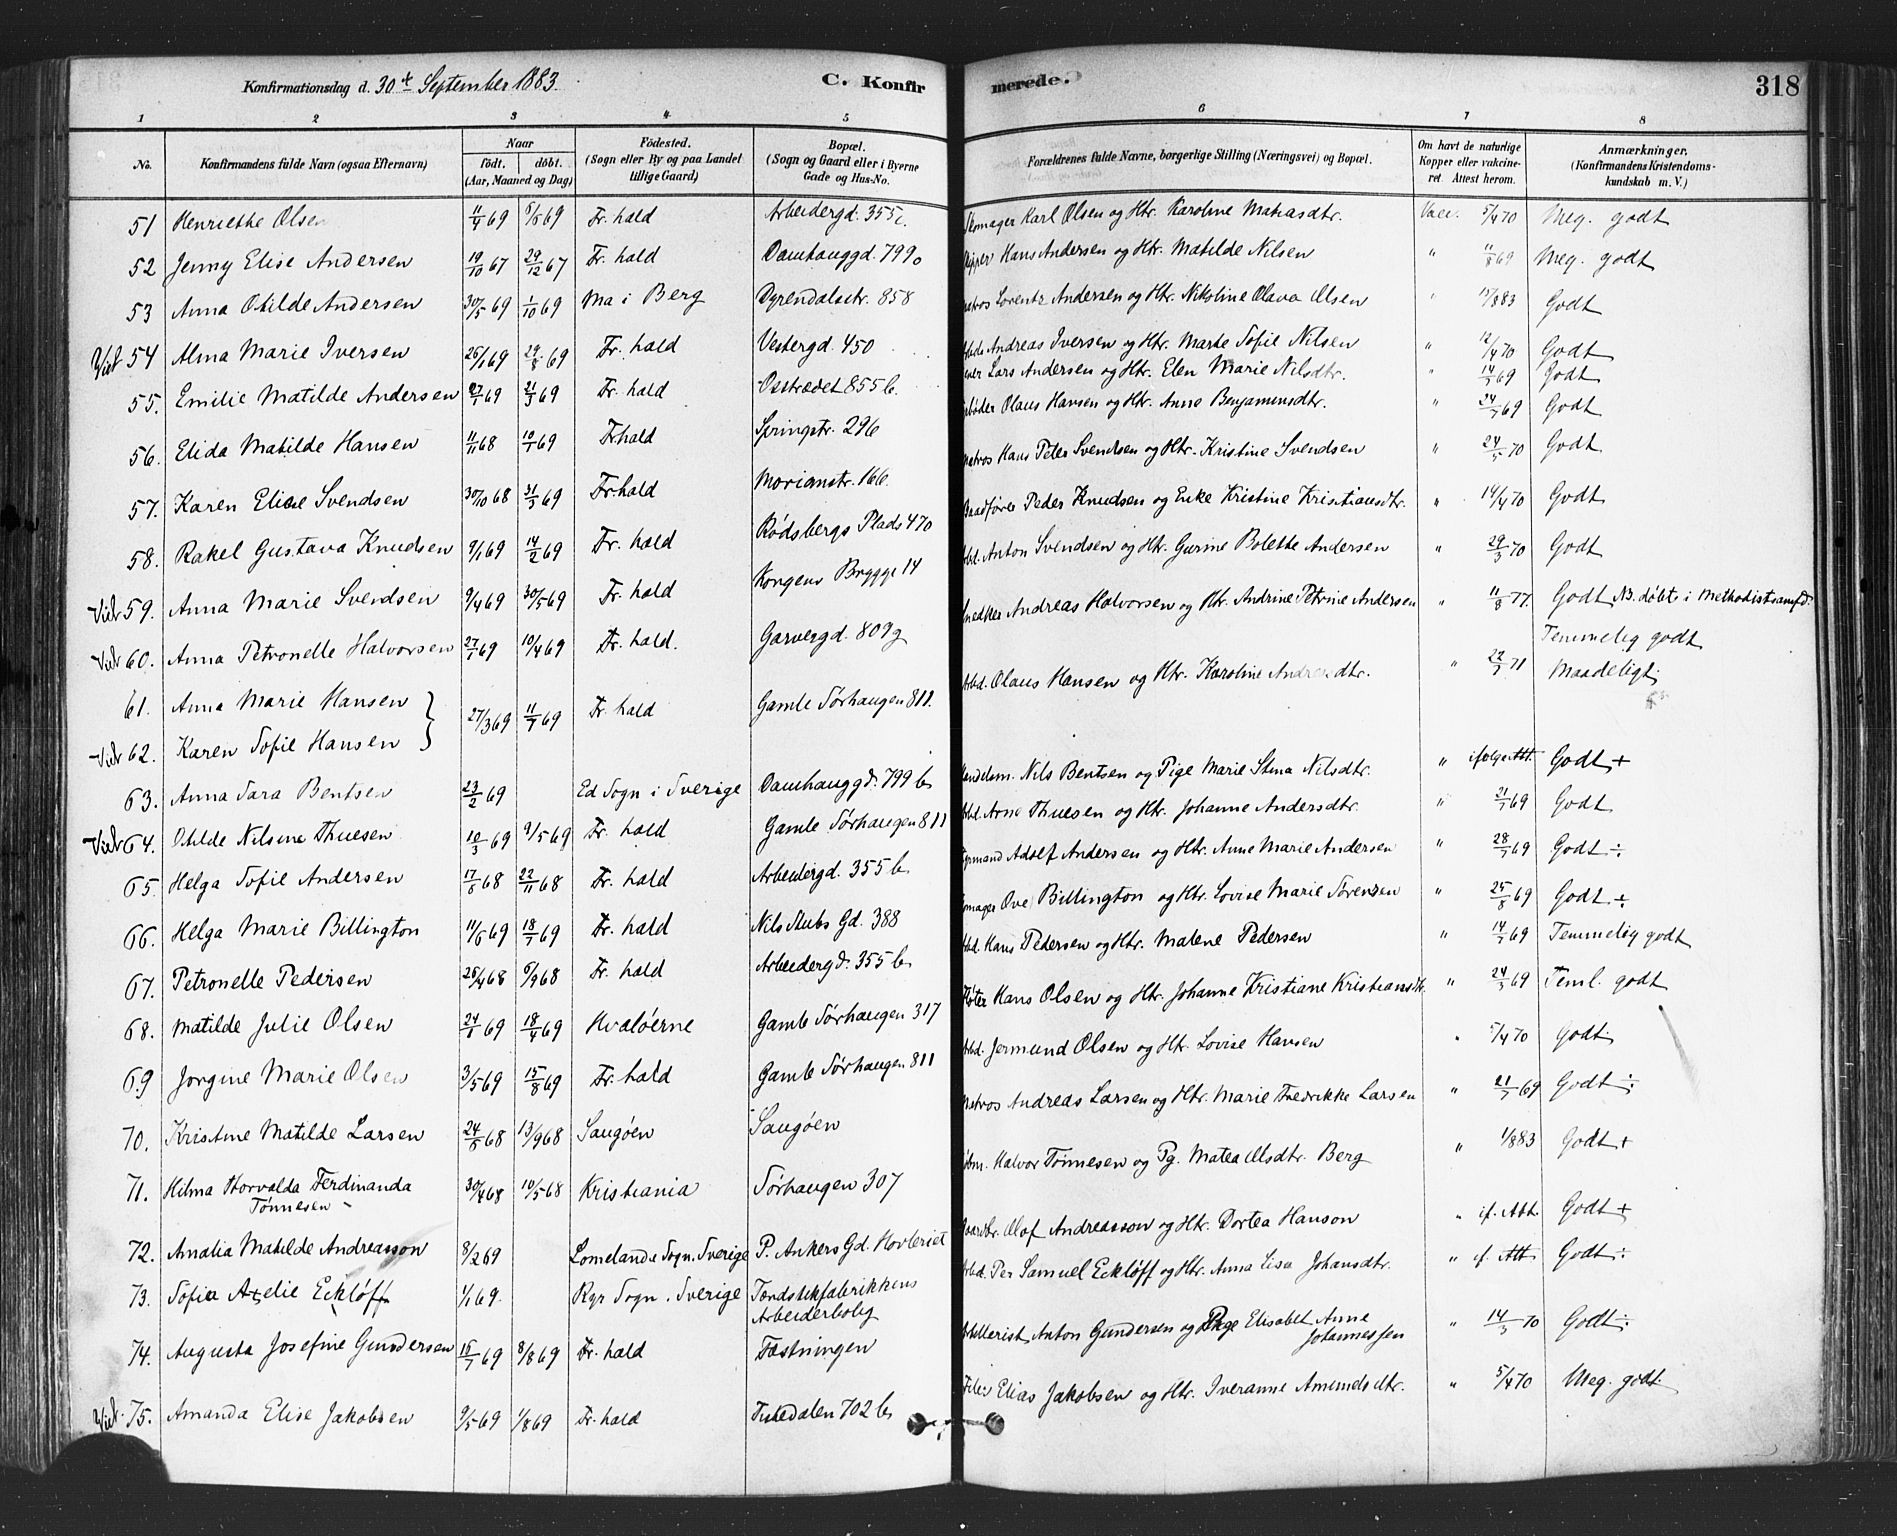 Konfirmationsdag d. 30te September 1883. C. Konfirmerede. 318
1 2 3 4 5 6 7 8
No. Konfirmandens fulde Navn (ogsaa Efternavn) Naar født. døbt. (Aar, Maaned og Dag) Fødested. (Sogn eller By og paa Landet tillige Gaard) Bopæl. (Sogn og Gaard eller i Byerne Gade og Hus-No. Forældrenes fulde Navne, borgerlige Stilling (Næringsvei) og Bopæl. Om havt de naturlige Kopper eller vakcineret. Attest herom. Anmærkninger, (Konfirmandens Kristendomskundskab m. V.)
51 Henriethe Olsen 11/4 69 6/5 69 Fr.hald Arbeidergd. 355c. Skomager Karl Olsen og Htr. Karoline Matiasdtr. Vacc. 5/4 70 Meg. godt
52 Jenny Elise Andersen 19/10 67 29/12 67 Fr.hald Damhauggd. 799 Skipper Hans Andersen og Htr. Matilde Nilsen " 11/8 69 Meg. godt
53 Anna Otilde Andersen 30/5 69 1/10 69 Ma i Berg Dyrendalsstr. 858 Matros Lorentz Andersen og Htr. Nikoline Olava Olsen " 15/8 83 Godt
Viet 54 Alma Marie Iversen 26/1 69 29/8 69 Fr.hald Vestergd. 450 Andreas Iversen og Htr. Marte Sofie Nilsen " 12/4 70 Godt
55. Emilie Matilde Andersen 27/1 69 21/3 69 Fr.hald Osstrædet 855b. Lars Andersen og Htr. Elen Marie Nilsdtr. " 14/7 69 Godt
56. Elida Matilde Hansen 11/11 68 10/1 69 Fr.hald Springstr. 296 Olaus Hansen og Htr. Anne Benjaminsdtr. " 24/7 69 Godt
57. Karen Elise Svendsen 30/10 68 31/3 69 Fr.hald Morianstr. 166. Matros Hans Peter Svendsen og Htr. Kristine Svendsen " 24/5 70 Godt
58. Rakel Gustava Knudsen 9/1 69 14/2 69 Fr.hald Rødsbergs Plads 470 Baadfører Peder Knudsen og Enke Kristine Kristiansdtr. " 14/4 70 Godt
Viet 59. Anna Marie Svendsen 9/4 69 30/5 69 Fr.hald Kongens Brygge 14 Arbd. Anton Svendsen og Htr. Gurine Bolette Andersen " 29/3 70 Godt
Viet 60. Anna Petronelle Halvorsen 27/1 69 10/4 69 Fr.hald. Garvergd. 809g Snedker Andreas Halvorsen og Htr. Andrine Petrine Andersen " 11/8 77. Godt NB. døbt i Methodistsamfd.
61. Anna Marie Hansen } 27/3 69 11/7 69 Fr.hald Gamle Sørhaugen 811. Arbd. Olaus Hansen og Htr. Karoline Andreasdtr. " 22/7 71 Temmelig godt
Viet 62. Karen Sofie Hansen } Maadeligt
63. Anna Sara Bentsen 23/2 69 Ed Sogn i Sverige Damhauggd. 799 b Handelsm. Nils Bentsen og Pige Marie Stina Nilsdtr. " ifølge Att. Godt +
Viet 64. Otilde Nilsine Thuesen 10/3 69 9/5 69 Fr.hald Gamle Sørhaugen 811 Arbd. Arne Thuesen og Htr. Johanne Andersdtr. " 21/7 69 Godt
65. Helga Sofie Andersen 17/6 68 22/11 68 Fr.hald Arbeidergd. 355 b Styrmand Adolf Andersen og Htr. Anne Marie Andersen " 28/7 69 Godt ÷
66. Helga Marie Billington 11/6 69 18/7 69 Fr.hald Nils Stubs Gd. 388 Skomager Ove Billington og Htr. Lovise Marie Sørensen " 25/8 69 Godt ÷
67. Petronelle Pedersen 26/4 68 6/9 68 Fr.hald Arbeidergd. 355 b Arbd. Hans Pedersen og Htr. Malene Pedersen " 14/7 69 Temmelig godt
68. Matilde Julie Olsen 24/1 69 18/4 69 Hvaløerne Gamle Sørhaugen 317 Hans Olsen og Htr. Johanne Kristiane Kristiansdtr. " 24/3 69 Teml. godt
69 Jorgine Marie Olsen 3/5 69 15/8 69 Fr.hald Gamle Sørhaugen 811 Arbd. Jermund Olsen og Htr. Lovise Hansen " 5/4 70 Godt
70. Kristine Matilde Larsen 24/8 68 13/9 68 Saugøen Saugøen Matros Andreas Larsen og Htr. Marie Fredrikke Larsen " 21/7 69 Godt ÷
71. Hilma Thorvalda Ferdinanda Tønnesen 30/4 68 10/5 68 Kristiania Sørhaugen 307 Halvor Tønnesen og Pg. Matea Olsdtr. Berg " 1/8 83 Godt +
72. Amalia Matilde Andreasson 8/2 69 Lomelanda Sogn. Sverige P. Ankers Gd. Hovleriet Olof Andreasson og Htr. Dortea Hanson " if. Att. Godt +
73. Sofia Axelie Ecklöff 1/1 69. Ryr Sogn. Sverige Tændstikfabrikkens Arbeiderbolig Arbd. Per Samuel Ecklöff og Htr. Anna Lisa Johansdtr. " if. Att Godt ÷
74. Augusta Josefine Gundersen 15/7 69 8/8 69 Fr.hald Fæstningen Artillerist Anton Gundersen og Pige Elisabet Anne Johannessen " 14/3 70 Godt ÷
Viet 75. Amanda Elise Jakobsen 9/5 69 1/8 69 Fr.hald Tistedalen 702 b Elias Jakobsen og Htr. Iveranne Amundsdtr. " 5/4 70 Meg. godt